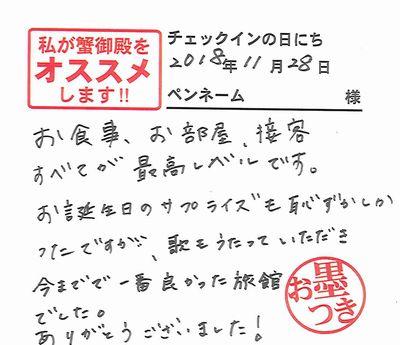 私が蟹御殿を
オススメ
します!!
チェックインの日にち
2018年11月28日
ペンネーム 様
お食事、お部屋、接客
すべてが最高レベルです。
お誕生日のサプライズも恥ずかしか
ったですが、歌もうたっていただき
今までで一番良かった旅館
でした。
ありがとうございました!
お墨つき